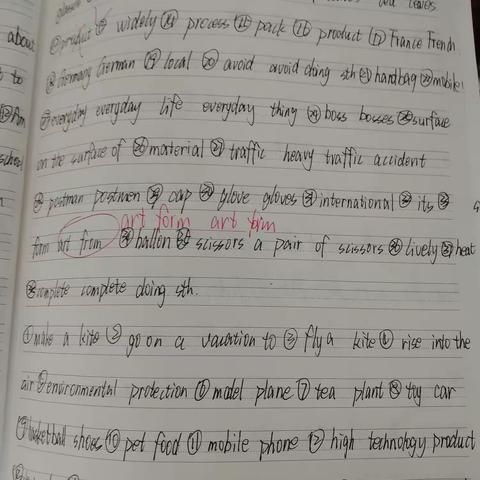 glasses
leaves
product widely ⑭ process ⑮ pack ⑯ product ⑰ France French
⑱ Germany German ⑲ local ⑳ avoid avoid doing sth ㉑ handbag ㉒ mobile
㉓ everyday everyday life everyday thing ㉔ boss bosses ㉕ surface
on the surface of ㉖ material ㉗ traffic heavy traffic accident
㉘ postman postmen ㉙ cap ㉚ glove gloves ㉛ international ㉜ its ㉝
art form art form
form art from ㉞ ballon ㉟ scissors a pair of scissors ㊱ lively ㊲ heat
㊳ complete complete doing sth.
① make a kite ② go on a vacation to ③ fly a kite ④ rise into the
air ⑤ environmental protection ⑥ model plane ⑦ tea plant ⑧ toy car
⑨ basketball shoes ⑩ pet food ⑪ mobile phone ⑫ high technology product
about
to